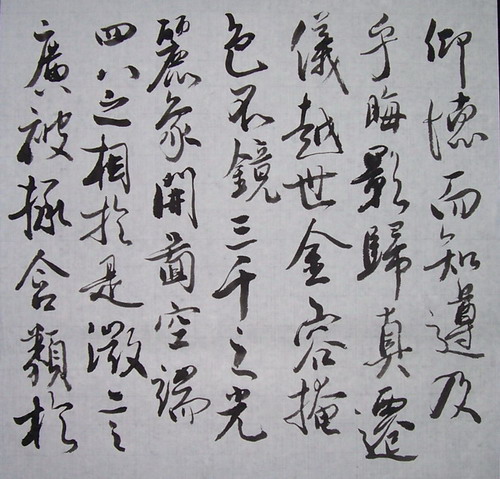 仰德而知遵及
乎晦影歸真遷
儀越世金容掩
色不鏡三千之光
麗象開圖空端
四八之相於是微言
廣被拯含類於